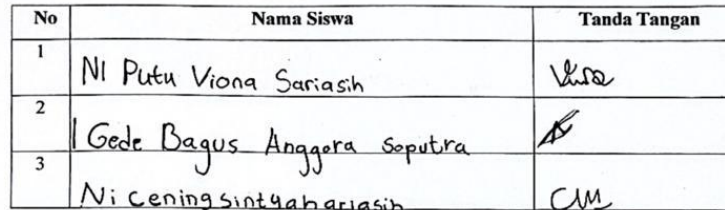 No Nama Siswa Tanda Tangan
1 NI Putu Viona Sariasih
2 I Gede Bagus Anggara Saputra
3 Ni Cening sintyahariasih